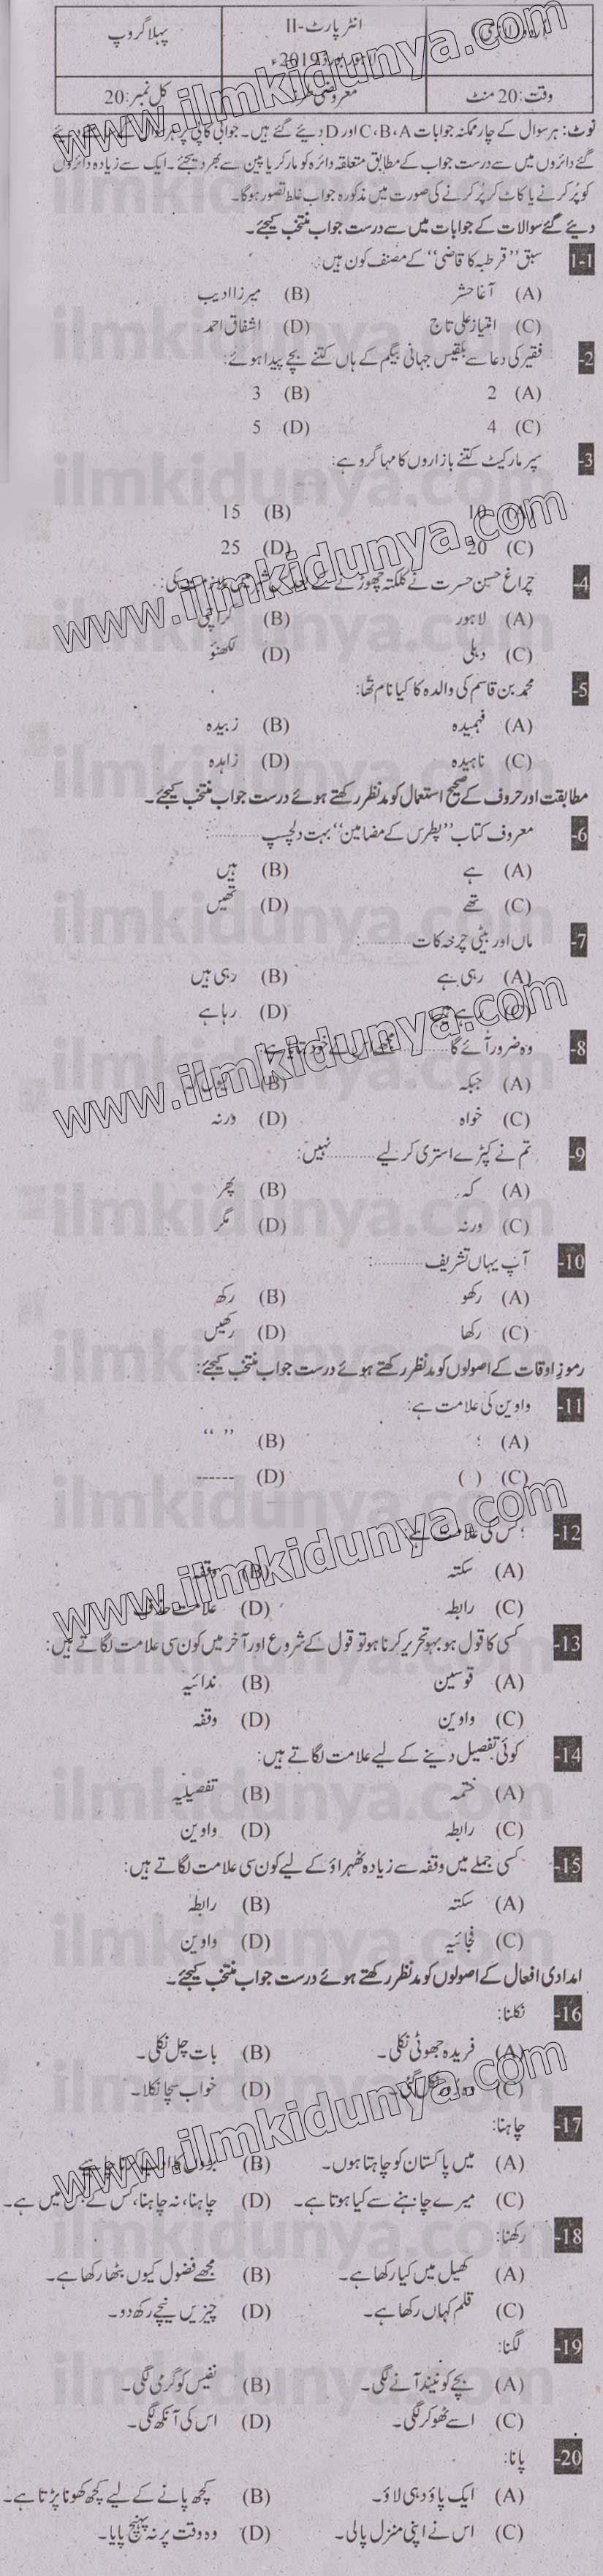 انٹر پارٹ-II
پہلا گروپ
2019ء
وقت: 20 منٹ
معروضی
کل نمبر: 20
نوٹ: ہر سوال کے چار ممکنہ جوابات C، B، A اور D دیئے گئے ہیں۔ جوابی کاپی پر ہر
گئے دائروں میں سے درست جواب کے مطابق متعلقہ دائرہ کو مارکر یا پین سے بھر دیجئے۔ ایک سے زیادہ دائروں
کو پُر کرنے یا کاٹ کر پُر کرنے کی صورت میں مذکورہ جواب غلط تصور ہوگا۔
دیئے گئے سوالات کے جوابات میں سے درست جواب منتخب کیجئے۔
1-1 سبق "قرطبہ کا قاضی" کے مصنف کون ہیں:
(A) آغا حشر (B) میرزا ادیب
(C) امتیاز علی تاج (D) اشفاق احمد
2- فقیر کی دعا سے بلقیس جہانی بیگم کے ہاں کتنے بچے پیدا ہوئے:
(A) 2 (B) 3
(C) 4 (D) 5
3- سپر مارکیٹ کتنے بازاروں کا مہا گرو ہے:
(A) 10 (B) 15
(C) 20 (D) 25
4- چراغ حسن حسرت نے کلکتہ چھوڑنے کے بعد کی:
(A) لاہور (B) کراچی
(C) دہلی (D) لکھنؤ
5- محمد بن قاسم کی والدہ کا کیا نام تھا:
(A) فہمیدہ (B) زبیدہ
(C) ناہیدہ (D) زاہدہ
مطابقت اور حروف کے صحیح استعمال کو مدنظر رکھتے ہوئے درست جواب منتخب کیجئے۔
6- معروف کتاب "پطرس کے مضامین" بہت دلچسپ ..........:
(A) ہے (B) ہیں
(C) تھے (D) تھیں
7- ماں اور بیٹی چرخہ کات ..........:
(A) رہی ہے (B) رہی ہیں
(C) (D) رہا ہے
8- وہ ضرور آئے گا ..........
(A) جبکہ (B)
(C) خواہ (D) ورنہ
9- تم نے کپڑے استری کر لیے .......... نہیں:
(A) کہ (B) پھر
(C) ورنہ (D) مگر
10- آپ یہاں تشریف ..........:
(A) رکھو (B) رکھ
(C) رکھا (D) رکھیں
رموزِ اوقات کے اصولوں کو مدنظر رکھتے ہوئے درست جواب منتخب کیجئے:
11- واوین کی علامت ہے:
(A) ؛ (B) “ ”
(C) ( ) (D) ------
12- ؛ کس کی علامت ہے
(A) سکتہ (B) وقفہ
(C) رابطہ (D) علامت حذف
13- کسی کا قول ہو بہو تحریر کرنا ہو تو قول کے شروع اور آخر میں کون سی علامت لگاتے ہیں:
(A) قوسین (B) ندائیہ
(C) واوین (D) وقفہ
14- کوئی تفصیل دینے کے لیے علامت لگاتے ہیں:
(A) ختمہ (B) تفصیلیہ
(C) رابطہ (D) واوین
15- کسی جملے میں وقفہ سے زیادہ ٹھہراؤ کے لیے کون سی علامت لگاتے ہیں:
(A) سکتہ (B) رابطہ
(C) فجائیہ (D) واوین
امدادی افعال کے اصولوں کو مدنظر رکھتے ہوئے درست جواب منتخب کیجئے۔
16- نکلنا:
(A) فریدہ جھوٹی نکلی۔ (B) بات چل نکلی۔
(C) (D) خواب سچا نکلا۔
17- چاہنا:
(A) میں پاکستان کو چاہتا ہوں۔ (B)
(C) میرے چاہنے سے کیا ہوتا ہے۔ (D) چاہنا، نہ چاہنا، کس کے بس میں ہے۔
18- رکھنا:
(A) کھیل میں کیا رکھا ہے۔ (B) مجھے فضول کیوں بٹھا رکھا ہے۔
(C) قلم کہاں رکھا ہے۔ (D) چیزیں نیچے رکھ دو۔
19- لگنا:
(A) بچے کو نیند آنے لگی۔ (B) نفیس کو گرمی لگی۔
(C) اسے ٹھوکر لگی۔ (D) اس کی آنکھ لگی۔
20- پانا:
(A) ایک پاؤ دہی لاؤ۔ (B) کچھ پانے کے لیے کچھ کھونا پڑتا ہے۔
(C) اس نے اپنی منزل پا لی۔ (D) وہ وقت پر نہ پہنچ پایا۔
www.ilmkidunya.com